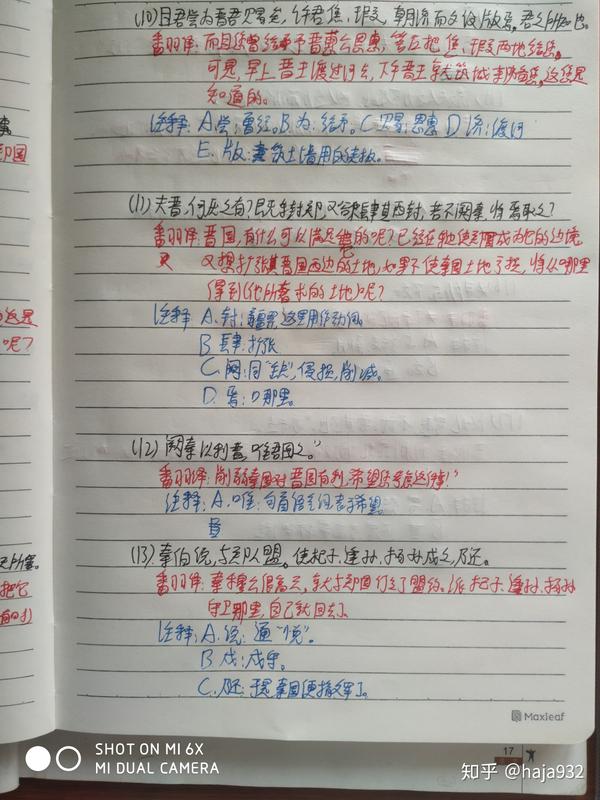 (10) 且君尝为晋君赐矣,许君焦、瑕,朝济而夕设版焉,君之所知也。
翻译:而且您曾经给予晋惠公恩惠,答应把焦、瑕两地给您。
可是,早上晋王渡过河去,下午晋王就筑城来防备您,这您是
知道的。
注释:A.尝:曾经。B.为:给予。C.赐:恩惠 D.济:渡河
E.版:筑土墙用的夹板。
(11) 夫晋,何厌之有?既东封郑,又欲肆其西封,若不阙秦,将焉取之?
翻译:晋国,有什么可以满足他的呢?已经在东使郑国成为他的边境,
又想扩张其晋国西边的土地,如果不使秦国土地亏损,将从哪里
得到他所要求的土地呢?
注释 A.封:疆界,这里用作动词。
B 肆:扩张
C.阙:同“缺”,侵损,削减。
D.焉:哪里。
(12) 阙秦以利晋,唯君图之。”
翻译:削弱秦国对晋国有利,希望您考虑这件事!”
注释:A.唯:句首语气词,表示希望。
(13) 秦伯说,与郑人盟。使杞子、逢孙、扬孙戍之,乃还。
翻译:秦穆公很高兴,就与郑国订立了盟约。派杞子、逢孙、扬孙
守卫那里,自己就回去了
注释:A.说:通“悦”。
B.戍:戍守。
C.乃还:于是秦国便撤军了。
Maxleaf
17
SHOT ON MI 6X
MI DUAL CAMERA
知乎 @haja932